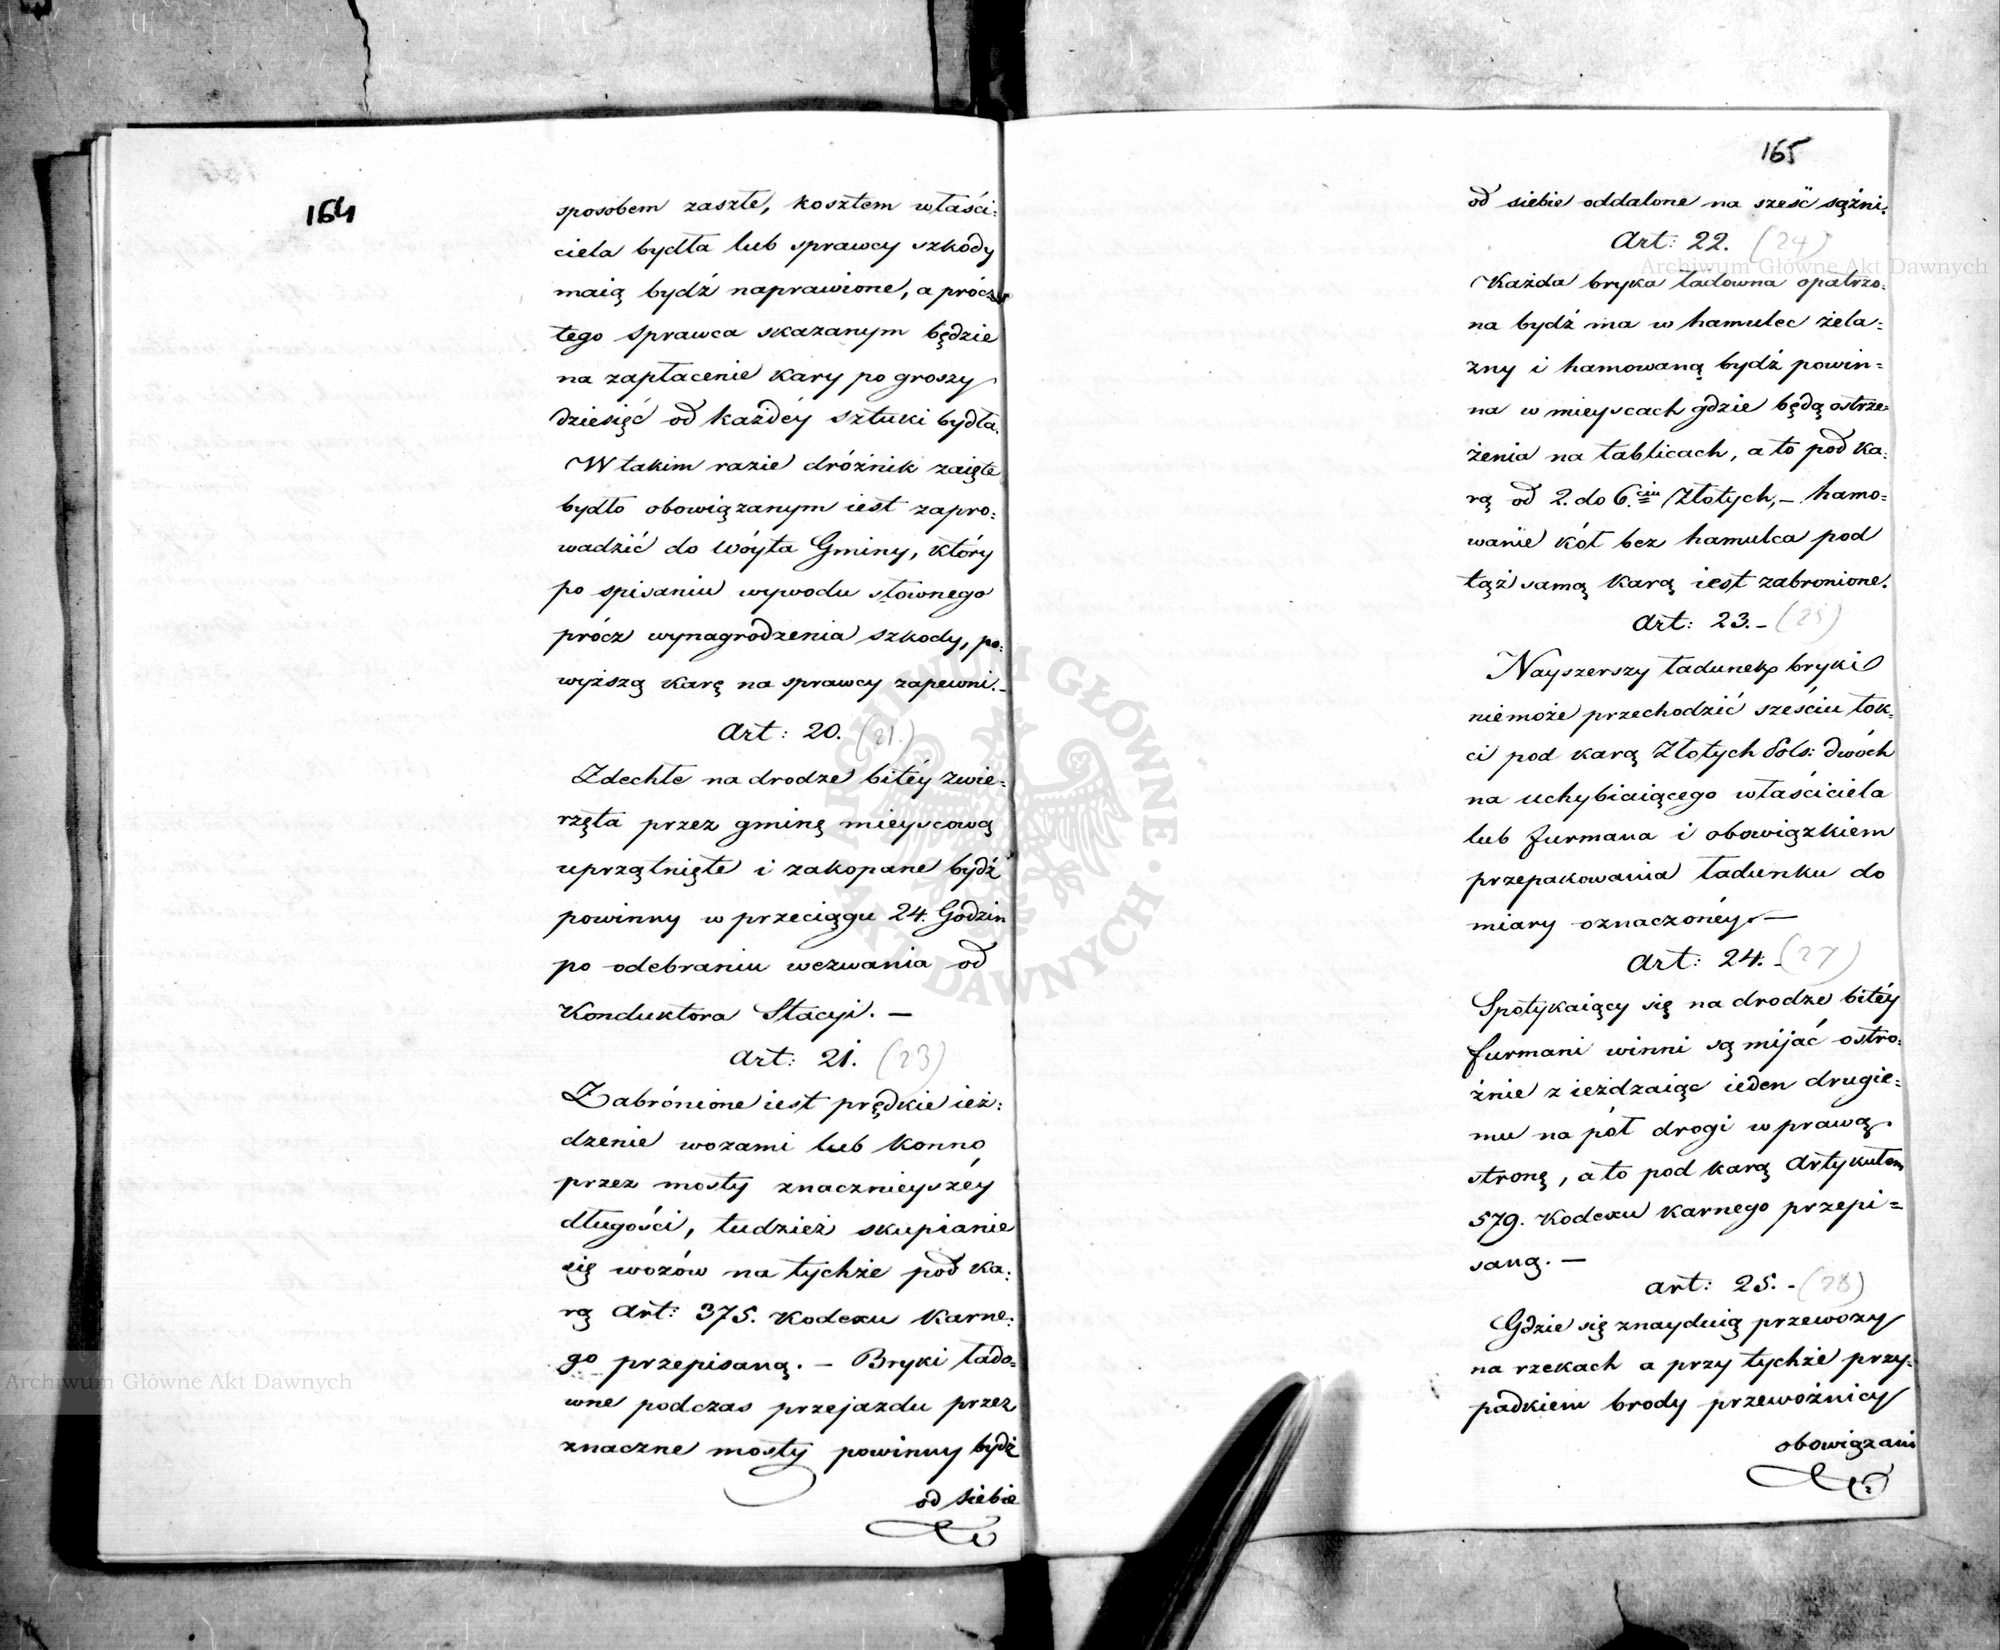 164
sposobem zaszłe, kosztem właści:
ciela bydła lub sprawcy szkody
maią bydź naprawione, a prócz
tego sprawca skazanym będzie
na zapłacenie kary po groszy
dziesięć od każdéy sztuki bydła.
W takim razie dróżnik zaięte
bydło obowiązanym iest zapro:
wadzić do Wóyta Gminy, który
po spisaniu wywodu słownego
prócz wynagrodzenia szkody, po:
wyższą karę na sprawcy zapewni.–
Art: 20. (21.)
Zdechłe na drodze bitéy zwie:
rzęta przez gminę mieyscową
uprzątnięte i zakopane bydź
powinny w przeciągu 24. Godzin
po odebraniu wezwania od
Konduktora Stacyi. –
Art: 21. (23)
Zabrónione iest prędkie ież:
dzenie wozami lub konno
przez mosty znacznieyszéy
długości, tudzież skupianie
się wozów na tychże pod ka:
rą Art: 375. Kodexu Karne:
go przepisaną. – Bryki łado=
wne podczas przejazdu przez
znaczne mosty powinny bydź
od siebie
165
od siebie oddalone na sześć sążni.
Art: 22. (24)
Każda bryka ładowna opatrzo:
na bydź ma w hamulec żela:
zny i hamowaną bydź powin=
na w mieyscach gdzie będą ostrze=
żenia na tablicach, a to pod ka:
rą od 2. do 6.ciu Złotych, – hamo=
wanie kół bez hamulca pod
tąż samą karą iest zabronione.
Art: 23. – (25)
Nayszerszy ładunek bryki
niemoże przechodzić sześciu łok:
ci pod karą Złotych Pols: dwóch
na uchybiaiącego właściciela
lub furmana i obowiązkiem
przepakowania ładunku do
miary oznaczonéy. –
Art: 24. – (27)
Spotykaiący się na drodze bitéy
furmani winni są mijać ostro:
żnie zieżdzaiąc ieden drugie=
mu na pół drogi w prawą
stronę, a to pod karą Artykułem
579. Kodexu karnego przepi=
saną. –
art: 25. – (28)
Gdzie się znayduią przewozy
na rzekach a przy tychże przy:
padkiem brody przewoźnicy
obowiązani
Archiwum Główne Akt Dawnych
Archiwum Główne Akt Dawnych
ARCHIWUM GŁÓWNE AKT DAWNYCH